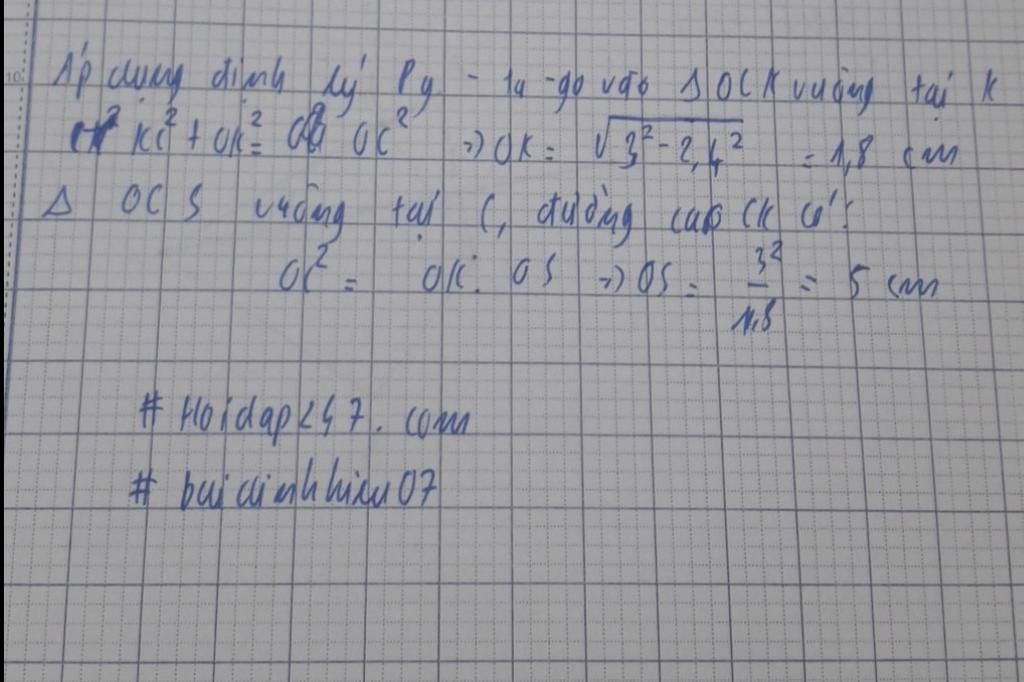 Áp dụng định lý Py-ta-go vào Δ OCK vuông tại K
KC² + OK² = OC² => OK = √3² - 2,4² = 1,8 cm
Δ OCS vuông tại C, đường cao CK có:
OC² = OK. OS => OS = 3²/1,8 = 5 cm
# Hoidap247.com
# buidinhhieu07